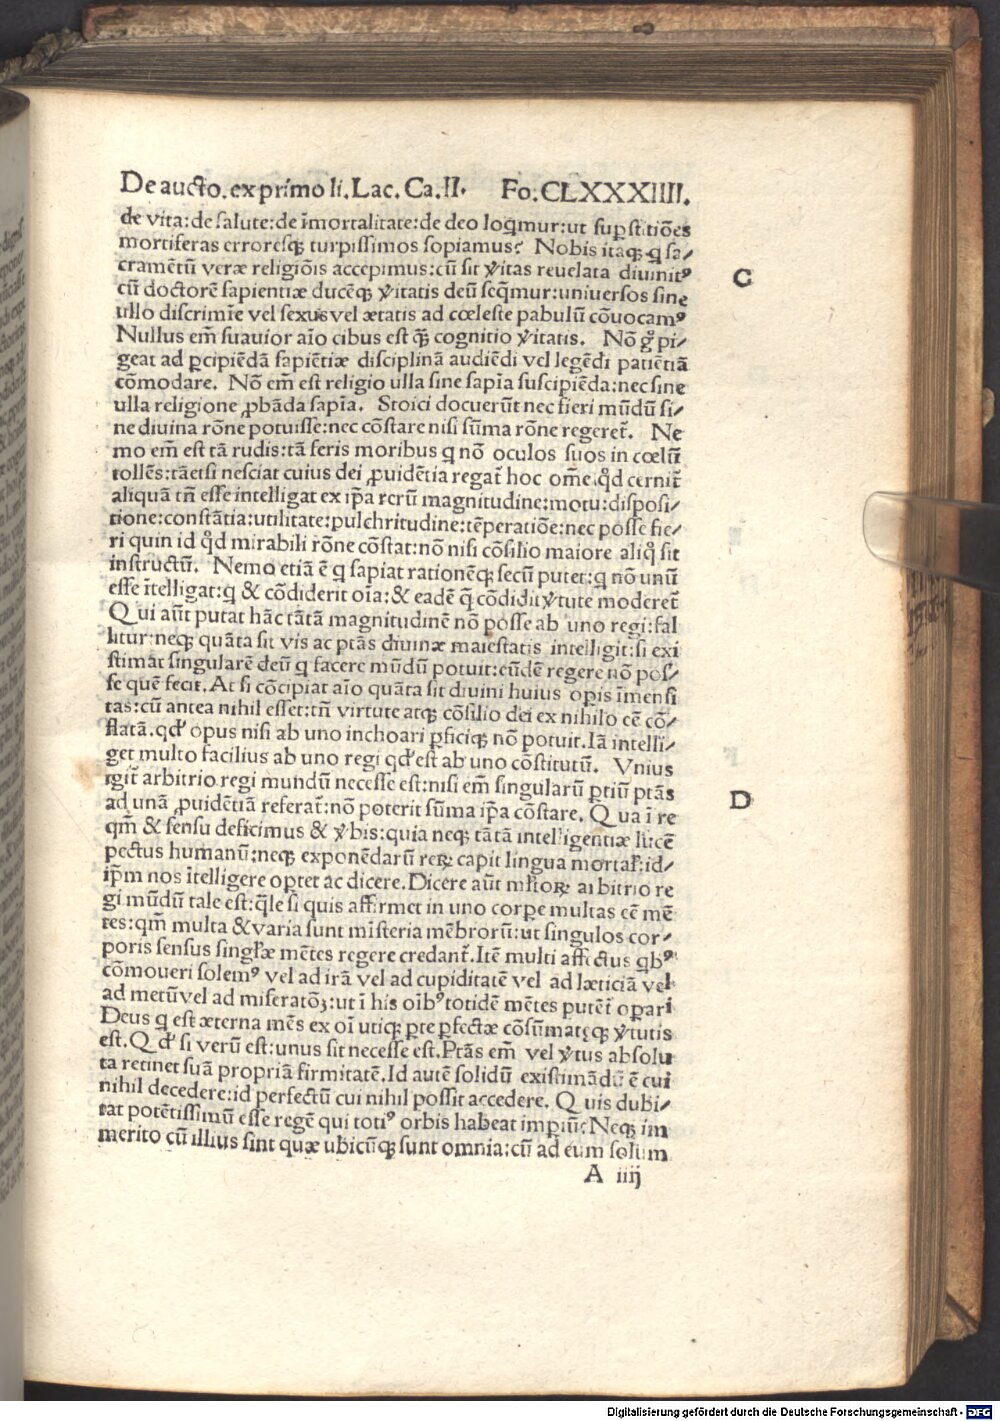 De aucto. ex primo li. Lac. Ca. II. Fo. CLXXXIIII.
de vita: de salute: de īmortalitate: de deo loq̄mur: ut suꝑstitiōes
mortiferas erroresqꝫ turpissimos sopiamus? Nobis itaqꝫ q̄ sa/
cramētū veræ religiōis accepimus: cū sit v̓itas reuelata diuinitꝰ
cū doctorē sapientiæ ducēqꝫ v̓itatis deū seq̄mur: universos sine
ullo discrimīe vel sexus vel ætatis ad cœleste pabulū cōuocamꝰ
Nullus em̄ suavior aīo cibus est q̄ꝫ cognitio v̓itatis. Nō g̊ pi/
geat ad ꝑcipiēdā sapiētiæ disciplinā audiēdi vel legēdi patiētiā
cōmodare. Nō em̄ est religio ulla sine sapīa suscipiēda: nec sine
ulla religione ꝓbāda sapīa. Stoici docuerūt nec fieri mūdū si/
ne divina rōne potuisse: nec cōstare nisi sūma rōne regeret̄. Ne
mo em̄ est tā rudis: tā feris moribus q̄ nō oculos suos in cœlū
tollēs: tāetsi nesciat cuius dei ꝓuidētia regat̄ hoc om̄e qd̓ cernit̄
aliquā tn̄ esse intelligat ex ip̄a rerū magnitudine: motu: disposi/
tione: constātia: utilitate: pulchritudine: tēperatiōe: nec posse fie/
ri quin id qd̓ mirabili rōne cōstat: nō nisi cōsilio maiore aliq̊ sit
instructū. Nemo etiā ē q̄ sapiat rationēqꝫ secū putet: q̄ nō unū
esse ītelligat: q̄ & cōdiderit oīa: & eadē q̄ cōdidit v̓tute moderet̄
Qui aūt putat hāc tātā magnitudinē nō posse ab uno regi: fal
litur: neqꝫ quāta sit vis ac ptās diuinæ maiestatis intelligit: si exi
stimat singularē deū q̄ facere mūdū potuit: eūdē regere nō pos/
se quē fecit. At si cōcipiat aīo quāta sit divini huius opis īmensi
tas: cū antea nihil esset: tn̄ virtute atqꝫ cōsilio dei ex nihilo eē cō/
flatā. qd̓ opus nisi ab uno inchoari ꝑficiqꝫ nō potuit. Iā intelli/
get multo facilius ab uno regi qd̓ est ab uno cōstitutū. Vnius
igit̄ arbitrio regi mundū necesse est: nisi em̄ singularū ꝑtiū ptās
ad unā ꝓuidētiā referat̄: nō poterit sūma ip̄a cōstare. Qua ī re
qm̄ & sensu deficimus & v̓bis: quia neqꝫ tātā intelligentiæ lucē
pectus humanū: neqꝫ exponēdarū reꝝ capit lingua mortal̓: id/
ip̄m nos ītelligere oꝑtet ac dicere. Dicere aūt ml̓toꝝ arbitrio re
gi mūdū tale est: q̄le si quis affirmet in uno corꝑe multas eē mē
tes: qm̄ multa & varia sunt misteria mēbrorū: ut singulos cor/
poris sensus singl̓æ mētes regere credant̄. Itē multi affectus qbꝰ
cōmoueri solemꝰ vel ad irā vel ad cupiditatē vel ad lætitiā vel
ad metū vel ad miseratōꝫ: ut ī his oībꝰ totidē mētes putēt oꝑari
Deus q̄ est æterna mēs ex oī utiqꝫ ꝑte ꝑfectæ cōsūmatęqꝫ v̓tutis
est. Qd̓ si verū est: unus sit necesse est. Ptās em̄ vel v̓tus absolu
ta retinet suā propriā firmitatē. Id autē solidū existimādū ē cui
nihil decedere: id perfectū cui nihil possit accedere. Quis dubi/
tat potētissimū esse regē qui totiꝰ orbis habeat impiū? Neqꝫ im
merito cū illius sint quæ ubicūqꝫ sunt omnia: cū ad eum solum
A iiij
C
D
Digitalisierung gefördert durch die Deutsche Forschungsgemeinschaft - DFG